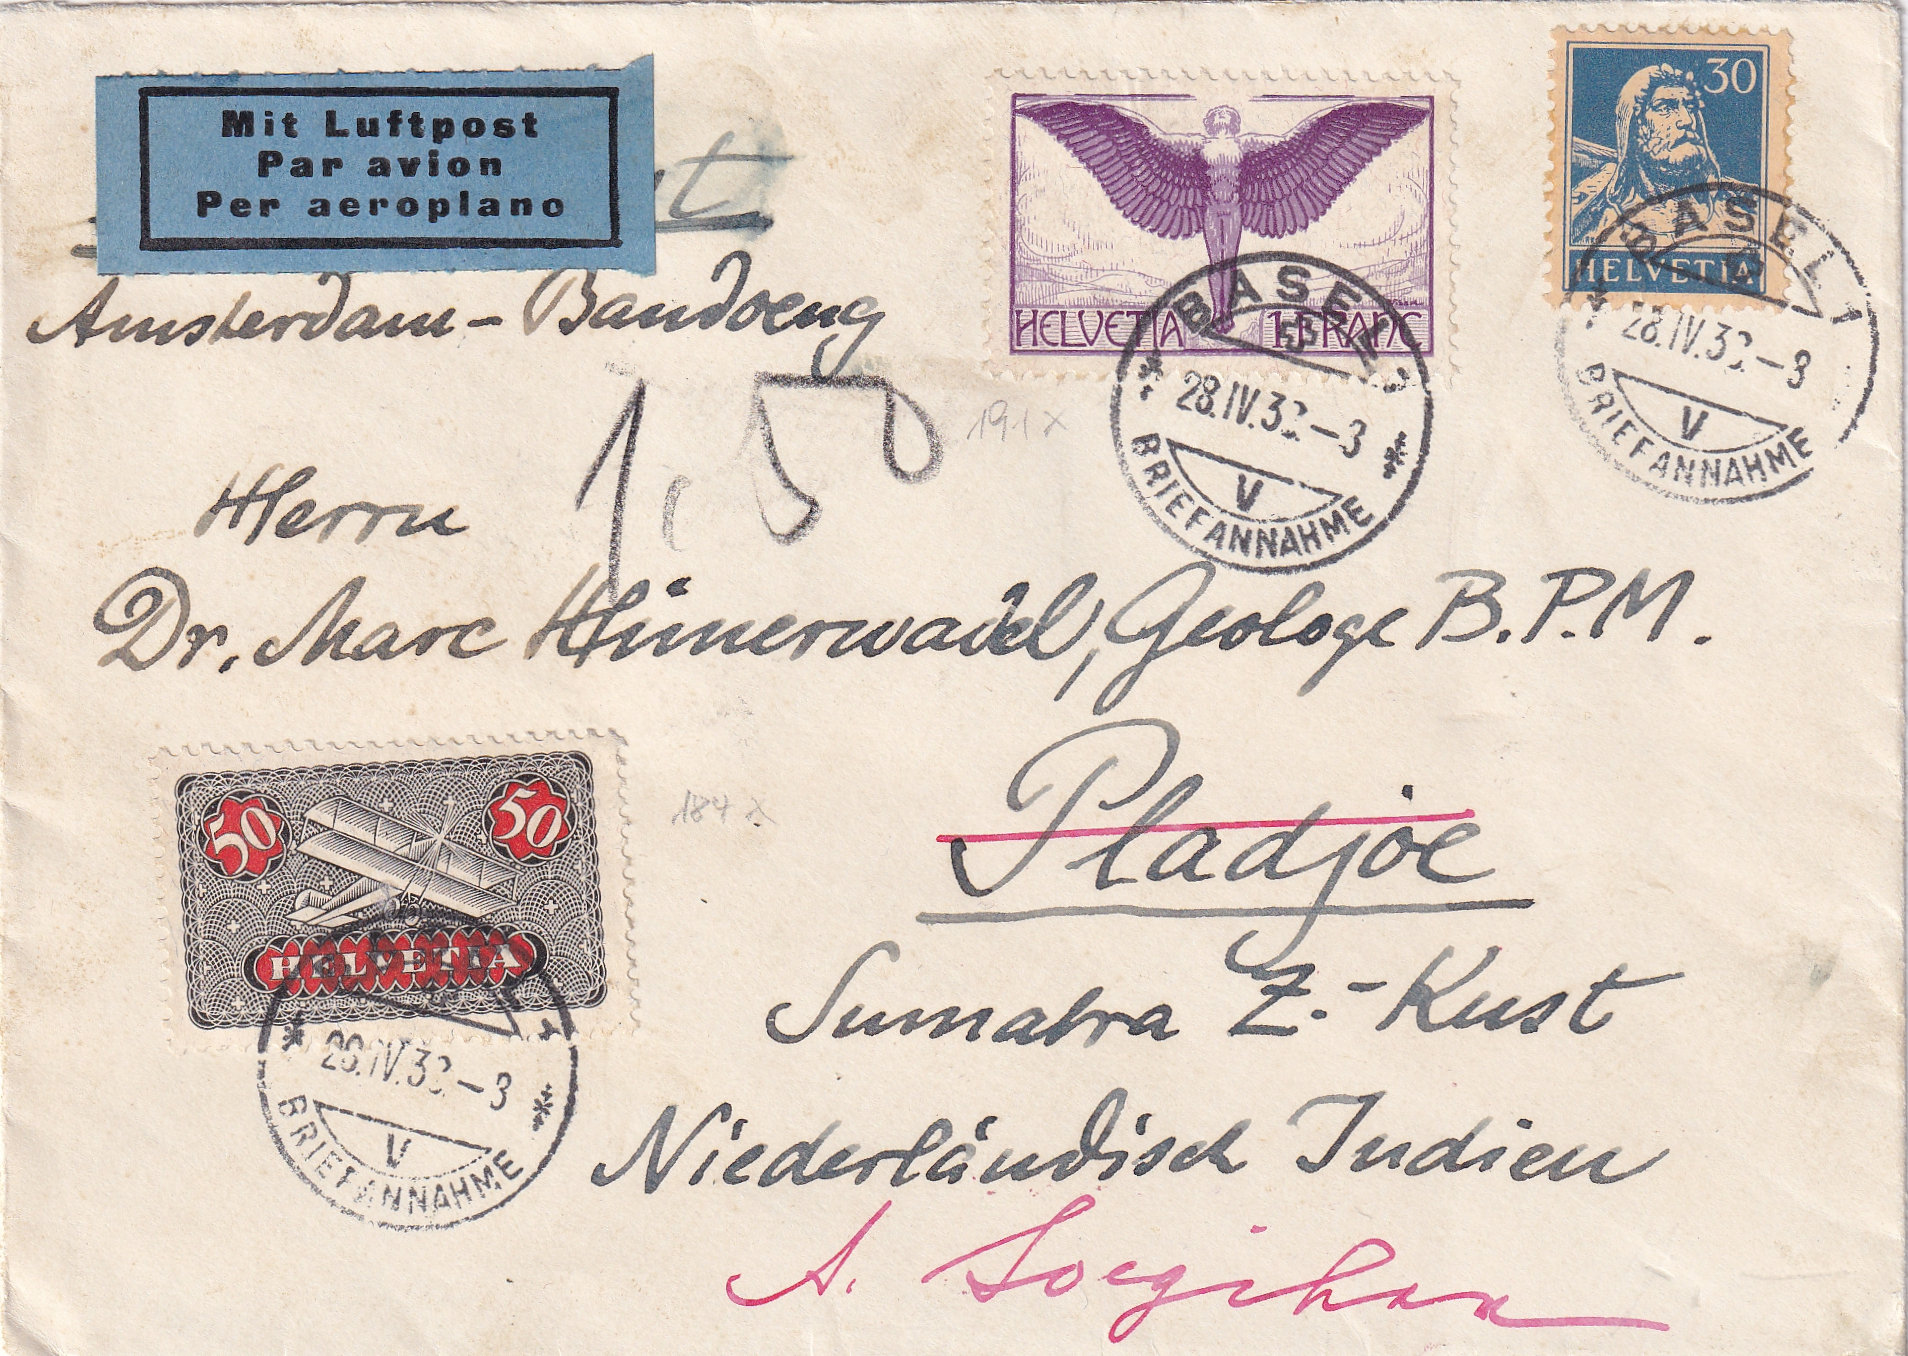 Mit Luftpost
Par avion
Per aeroplano
Amsterdam - Bandoeng
HELVETIA 1 FRANC
30
HELVETIA
BASEL
28.IV.32.-3
V
BRIEFANNAHME
BASEL 1
28.IV.32.-3
V
BRIEFANNAHME
1.50
191 x
Herrn
Dr. Marc Hünerwadel, Geologe B.P.M.
Pladjoe
Sumatra Z.-Kust
Niederländisch Indien
184 x
50
50
HELVETIA
28.IV.32.-3
V
BRIEFANNAHME